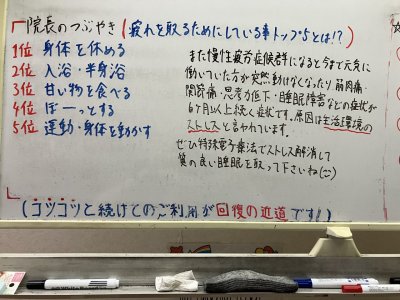 院長のつぶやき(疲れを取るためにしている事トップ5とは!?)
1位 身体を休める
2位 入浴・半身浴
3位 甘い物を食べる
4位 ぼーっとする
5位 運動・身体を動かす
また慢性疲労症候群になると今まで元気に
働いていた方が突然動けなくなったり、筋肉痛・
関節痛・思考力低下・睡眠障害などの症状が
6ヶ月以上続く症状です。原因は生活環境の
ストレスと言われています。
ぜひ特殊電子療法でストレス解消して
質の良い睡眠を取って下さいね
(コツコツと続けてのご利用が回復の近道です!)